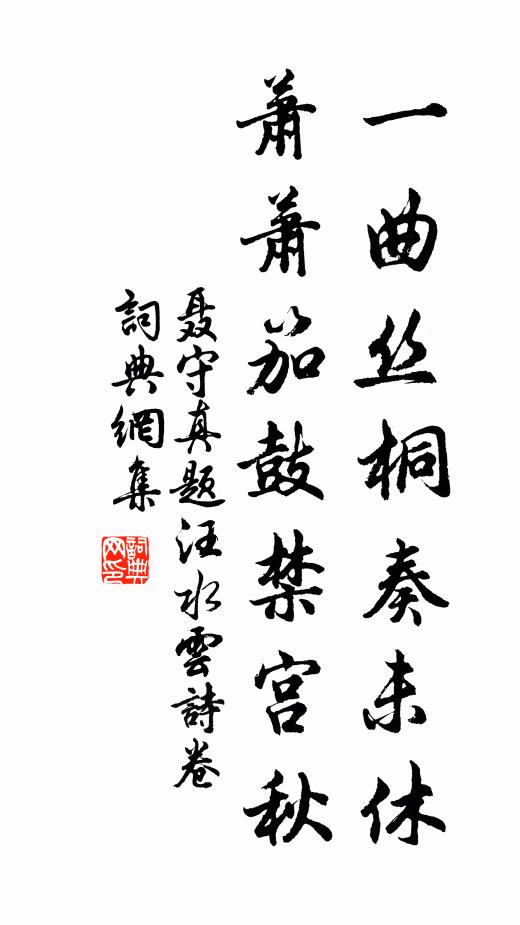 一曲丝桐奏未休
萧萧笳鼓禁宫秋
聂守真题汪水雲詩卷
詞典網集
詞典网印